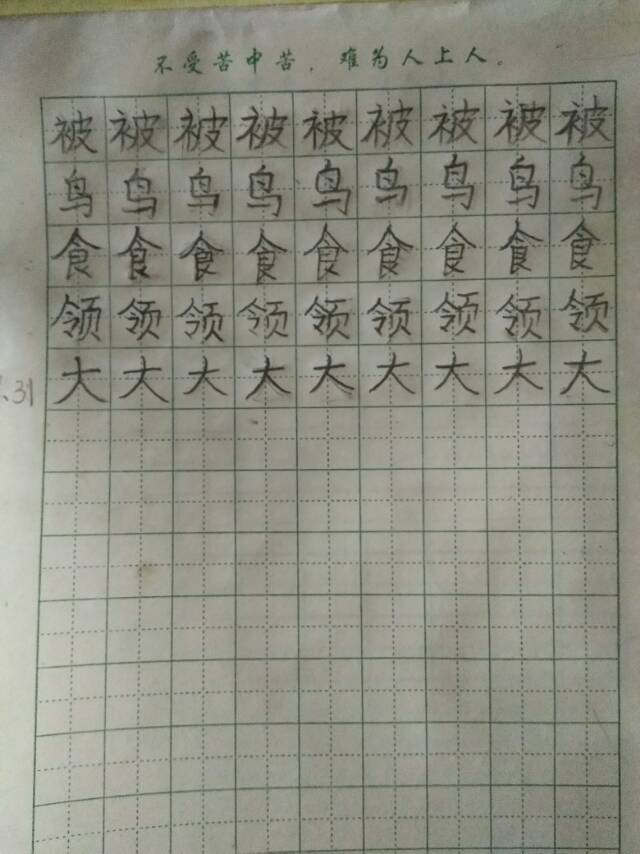 不受苦中苦，难为人上人。
被被被被被被被被被
鸟鸟鸟鸟鸟鸟鸟鸟鸟
食食食食食食食食食
领领领领领领领领领
.31 大大大大大大大大大